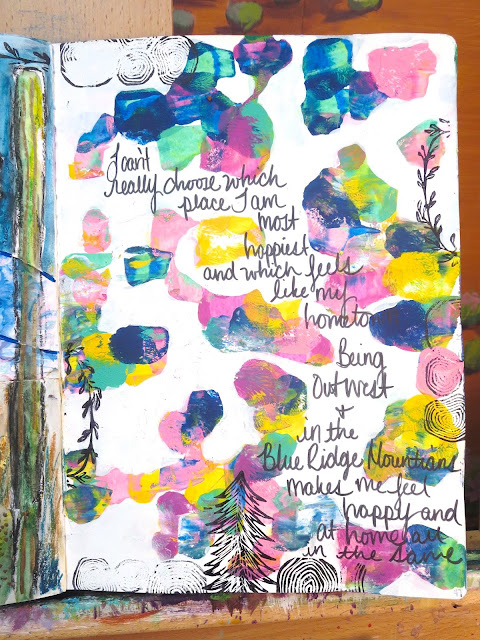 I can't
really choose which
place I am
most
happiest
and which feels
like my
hometo
Being
Out West
+
in the
Blue Ridge Mountians
makes me feel
happy and
at home all
in the same